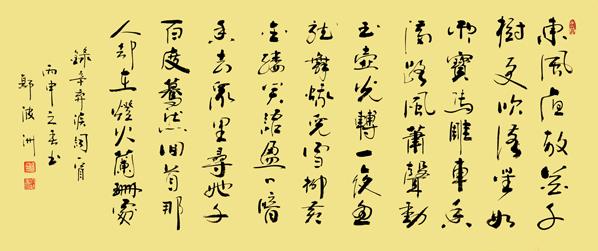 東風夜放花千
樹更吹落星如
雨寶馬雕車香
滿路風蕭聲動
玉壺光轉一夜魚
龍舞蛾兒雪柳黃
金縷笑語盈々暗
香去眾里尋她千
百度驀然回首那
人却在燈火蘭珊處
錄辛弃疾詞一首
丙申之春书
鄭波洲